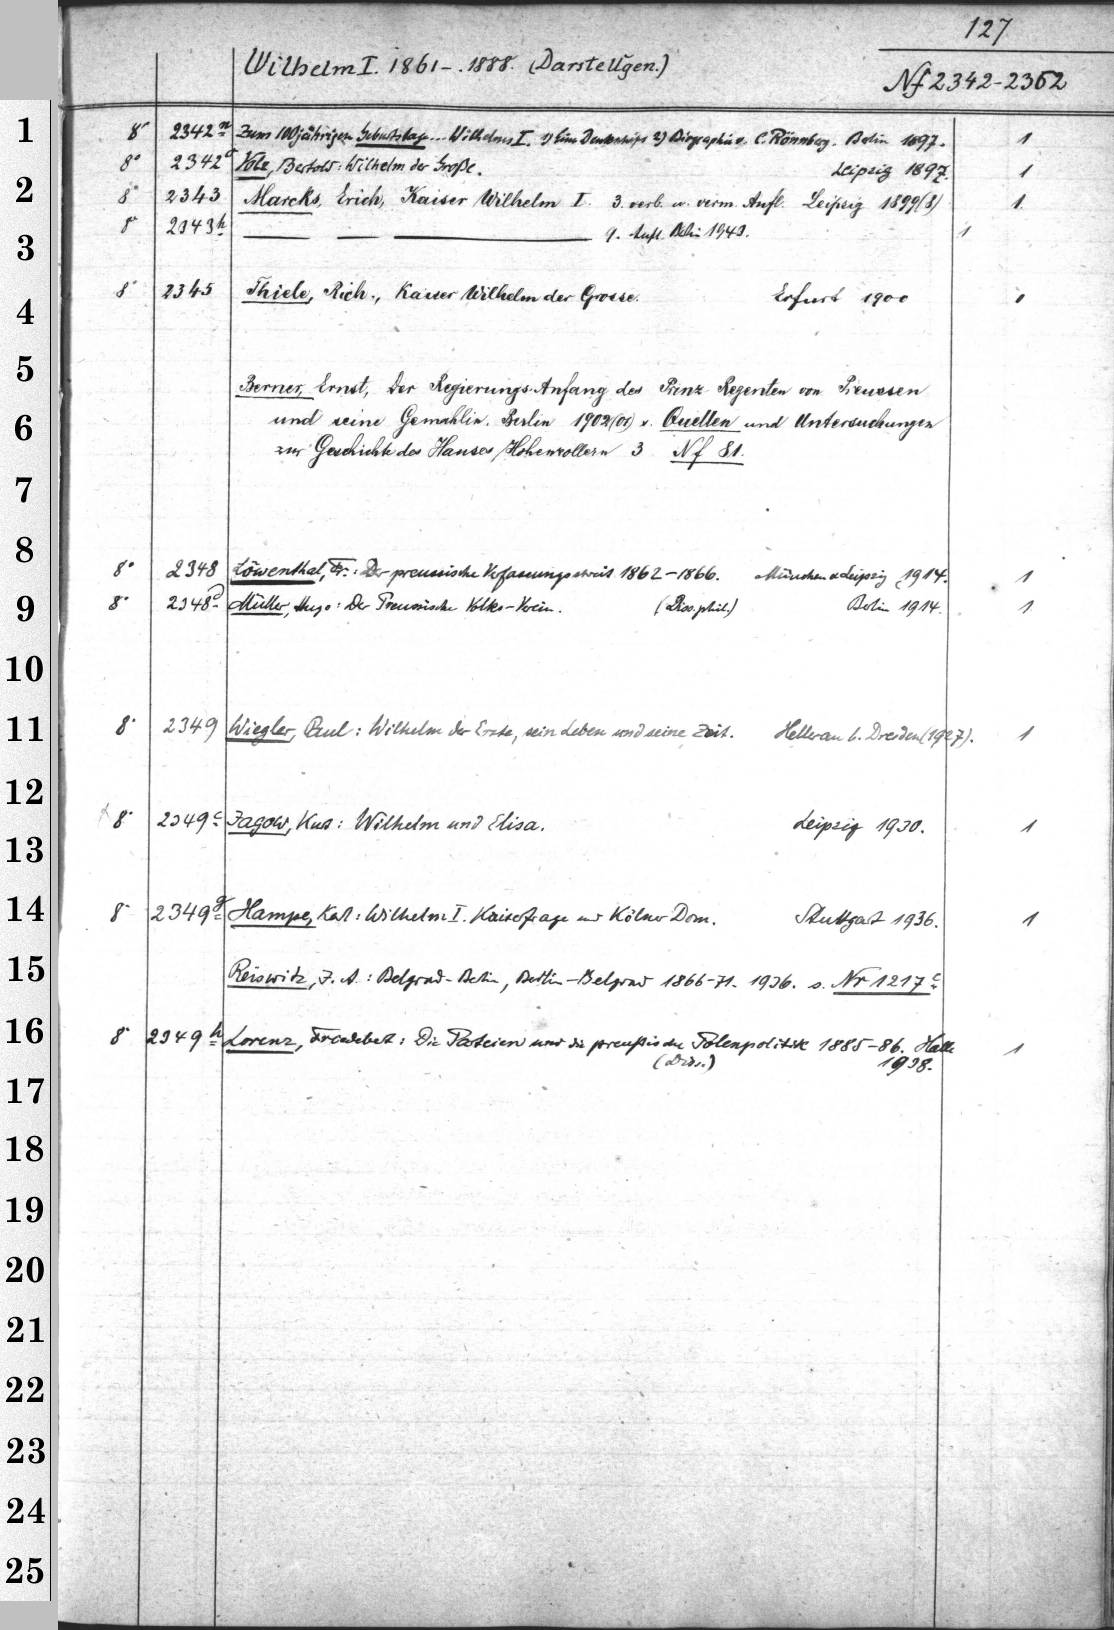 127
Wilhelm I. 1861-1888. (Darstellgen.)
Nf 2342-2362
1 8° 2342 n Zum 100jährigen Geburtstage... Wilhelms I. 1) Eine Denkschrift 2) Biographie v. C. Rönnberg. Berlin 1897. 1
8° 2342 Volz, Bertold: Wilhelm der Große. Leipzig 1897. 1
2 8° 2343 Marcks, Erich, Kaiser Wilhelm I. 3. verb. u. verm. Aufl. Leipzig 1899(8) 1.
3 8° 2343 h 9. Aufl. Berlin 1943. 1
4 8° 2345 Thiele, Rich., Kaiser Wilhelm der Grosse. Erfurt 1900
5 Berner, Ernst, Der Regierungs-Anfang des Prinz-Regenten von Preussen
6 und seine Gemahlin. Berlin 1902(01) s. Quellen und Untersuchungen
zur Geschichte des Hauses Hohenzollern 3 Nf 81.
7
8 8° 2348 Löwenthal, Fr.: Der preussische Verfassungsstreit 1862-1866. München u. Leipzig 1914. 1
9 8° 2348 d Müller, Hugo: Der Preussische Volks-Verein. (Diss. phil.) Berlin 1914. 1.
10
11 8° 2349 Wiegler, Paul: Wilhelm der Erste, sein Leben und seine Zeit. Hellerau b. Dresden (1927). 1
12
8° 2349 c Jagow, Kurt: Wilhelm und Elisa. Leipzig 1930. 1
13
14 8° 2349 g Hampe, Karl: Wilhelm I. Kaiserfrage und Kölner Dom. Stuttgart 1936. 1
15 Reiswitz, J. A.: Belgrad-Berlin, Berlin-Belgrad 1866-71. 1936. s. Nr 1217 c
16 8° 2349 h Lorenz, Friedebert: Die Parteien und die preußische Polenpolitik 1885-86. Halle
(Diss.) 1938. 1
17
18
19
20
21
22
23
24
25